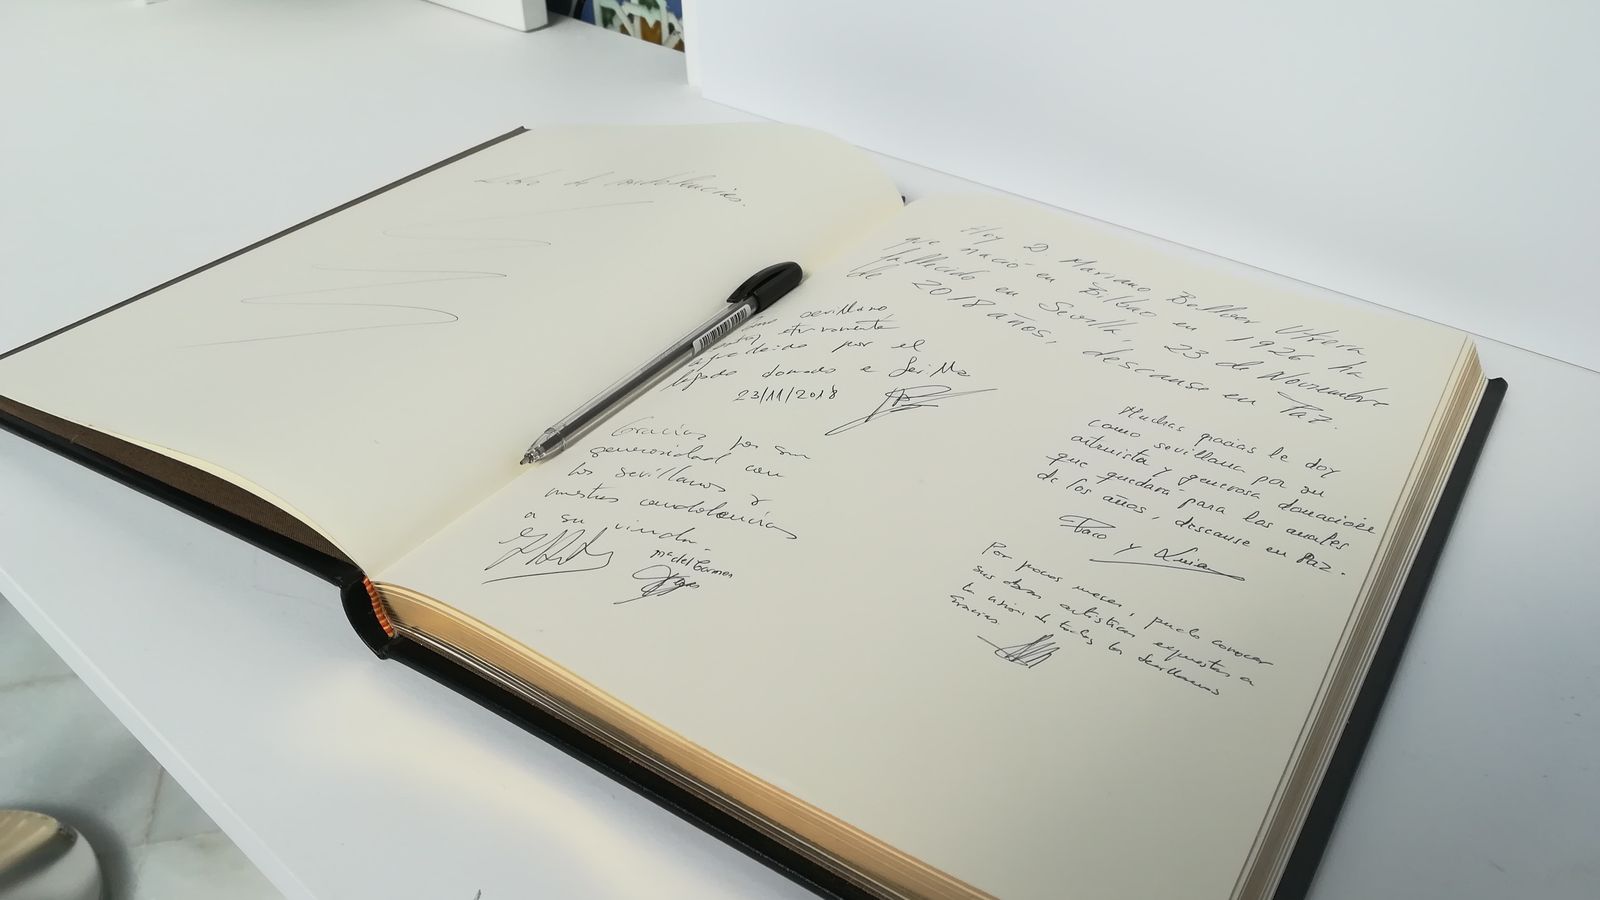 Libro de condolencias.
Hoy D Mariano Bellver Utrera,
que nació en Bilbao en 1926 ha
fallecido en Sevilla, 23 de Novienbre
de 2018 años, descanse en Paz.
como sevillano,
eternamente
agradecido por el
legado donado a Sevilla
23/11/2018
Gracias por su
generosidad con
los sevillanos y
nuestras condolencias
a su viuda.
Mª del Carmen
Muchas gracias le doy
como sevillana por su
altruista y generosa donación
que quedará para los anales
de los años, descanse en Paz.
Paco y
Por pocos meses, pude conocer
sus obras artísticas expuestas a
la visión de todos los Sevillanos
Gracias